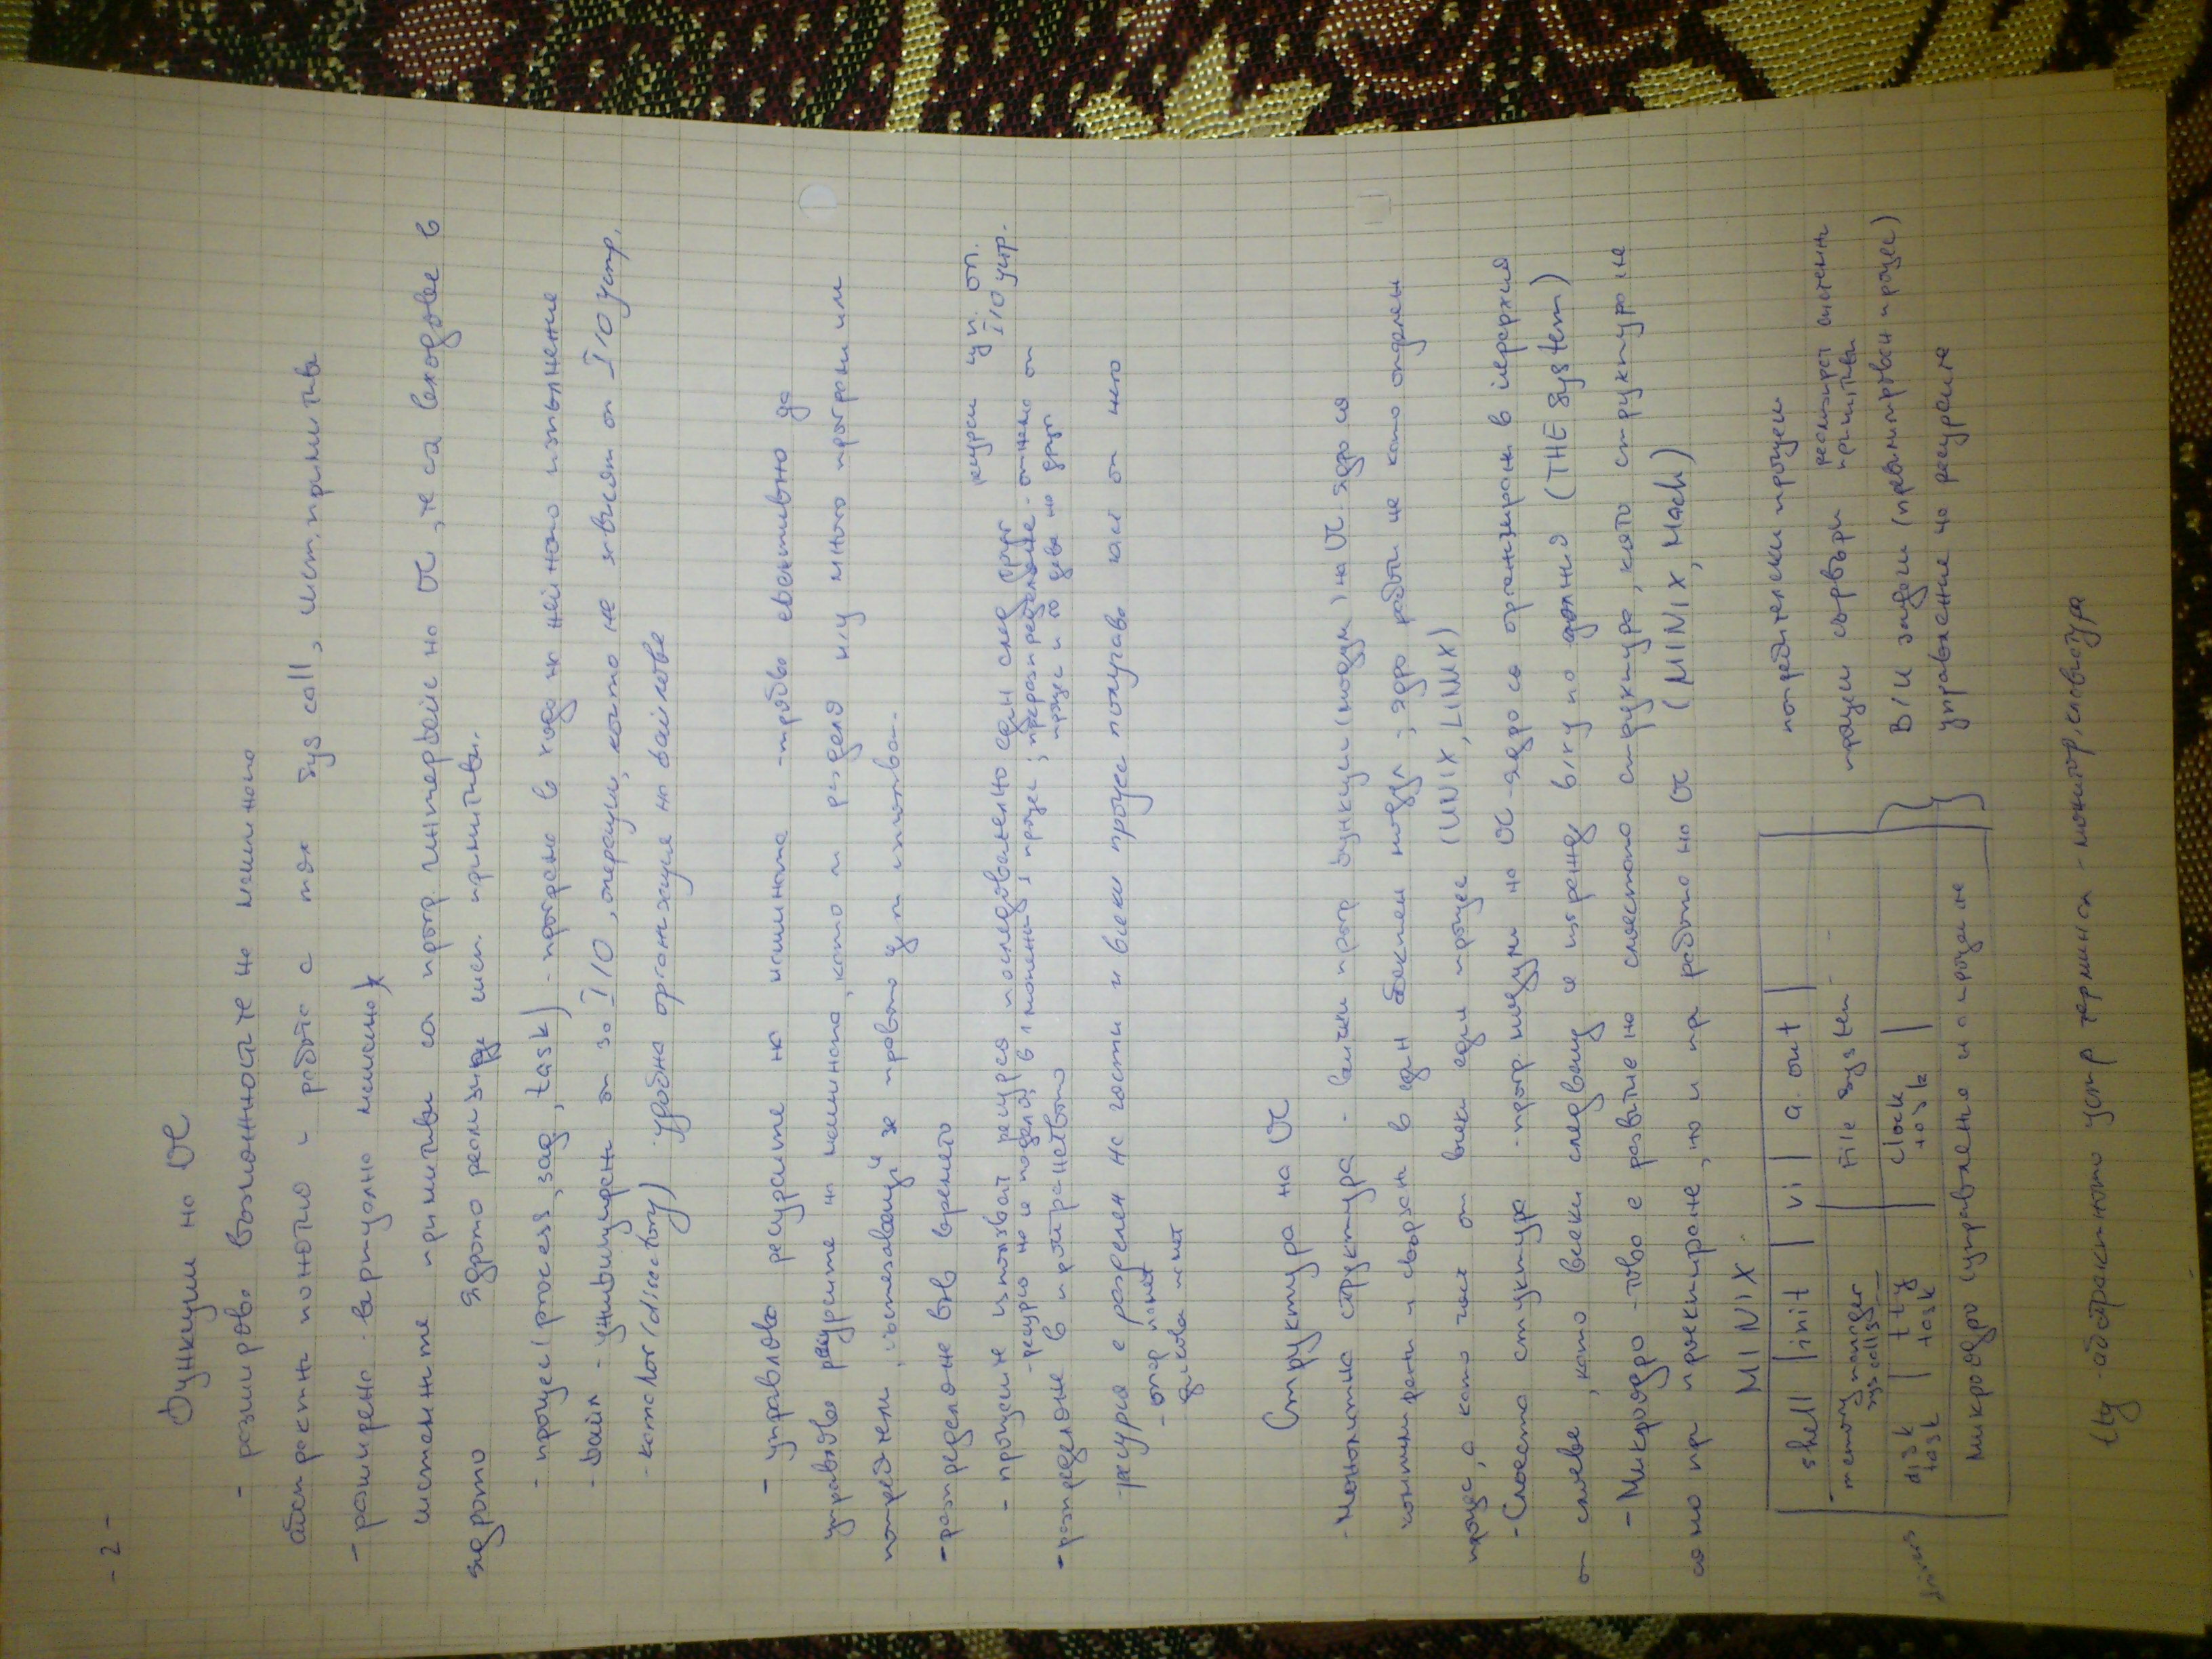 - 2 -
Функции на ОС
- разширява възможностите на машината
абстрактни понятия и работа с тях sys call, сист. примитиви
- разширена - виртуална машина
системните примитиви са прогр. интерфейс на ОС, те са входове в
ядрото ядрото реализира сист. примитиви.
- процес (process, зад, task) - програма в хода на нейното изпълнение
- файл - унифициран за I/O, операции, които не зависят от I/O устр.
- каталог (directory) удобна организация на файлове
- управлява ресурсите на машината - трябва ефективно да
управлява ресурсите на машината, като и разделя м/у много програми или
потребители, състезаващи се за правото да ги използват.
- разпределяне във времето
- процесите използват ресурса последователно един след друг
ресурси цп. оп.
I/O устр.
- ресурсът не се поделя, в 1 момент 1 процес; преразпределяне - отнемане от
процес и даване на друг
- разпределяне в пространството
- ресурса е разделен на части и всеки процес получава част от него
- опер. памет
дискова памет
Структура на ОС
- Монолитна структура - всички прогр функции (модули) на ОС. ядро са
компилирани и свързани в един обектен модул; ядро работи не като отделен
процес, а като част от всеки един процес (UNIX, LINUX)
- Слоеста структура - прогр. модули на ОС - ядро са организирани в йерархия
от слоеве, като всеки следващ е изграден в/ху по долния (THE System)
- Микроядро - това е развитие на слоестата структура, като структура не
само при проектиране, но и при работа на ОС (MINIX, Mach)
MINIX
shell | init | vi | a.out | потребителски процеси
memory manager sys calls | File system процеси сървъри реализират системни примитиви
disk task | tty task | clock task В/И задачи (привилегировани процеси)
Микроядро управление на процесите управление на ресурсите
tty - абстрактното устр терминал - монитор, клавиатура